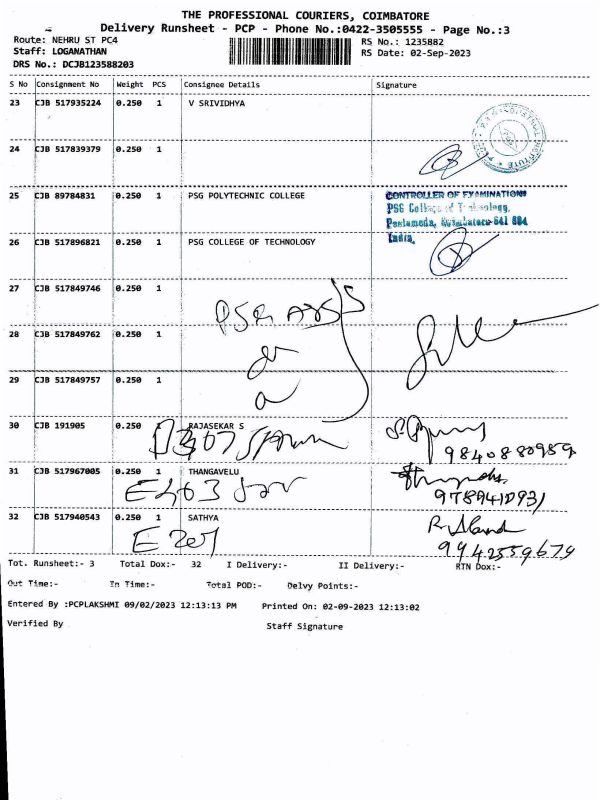 THE PROFESSIONAL COURIERS, COIMBATORE
Delivery Runsheet - PCP - Phone No.:0422-3505555 - Page No.:3
Route: NEHRU ST PC4 RS No.: 1235882
Staff: LOGANATHAN RS Date: 02-Sep-2023
DRS No.: DCJB123588203
S No Consignment No Weight PCS Consignee Details Signature
23 CJB 517935224 0.250 1 V SRIVIDHYA
24 CJB 517839379 0.250 1
25 CJB 89784831 0.250 1 PSG POLYTECHNIC COLLEGE
CONTROLLER OF EXAMINATIONS
PSG College of Technology,
Peelamedu, Coimbatore-641 004
India.
26 CJB 517896821 0.250 1 PSG COLLEGE OF TECHNOLOGY
27 CJB 517849746 0.250 1
PSG
28 CJB 517849762 0.250 1
29 CJB 517849757 0.250 1
30 CJB 191905 0.250 1 RAJASEKAR S
9840880959
31 CJB 517967005 0.250 1 THANGAVELU
32 CJB 517940543 0.250 1 SATHYA
9942559679
Tot. Runsheet:- 3 Total Dox:- 32 I Delivery:- II Delivery:- RTN Dox:-
Out Time:- In Time:- Total POD:- Delvy Points:-
Entered By :PCPLAKSHMI 09/02/2023 12:13:13 PM Printed On: 02-09-2023 12:13:02
Verified By Staff Signature